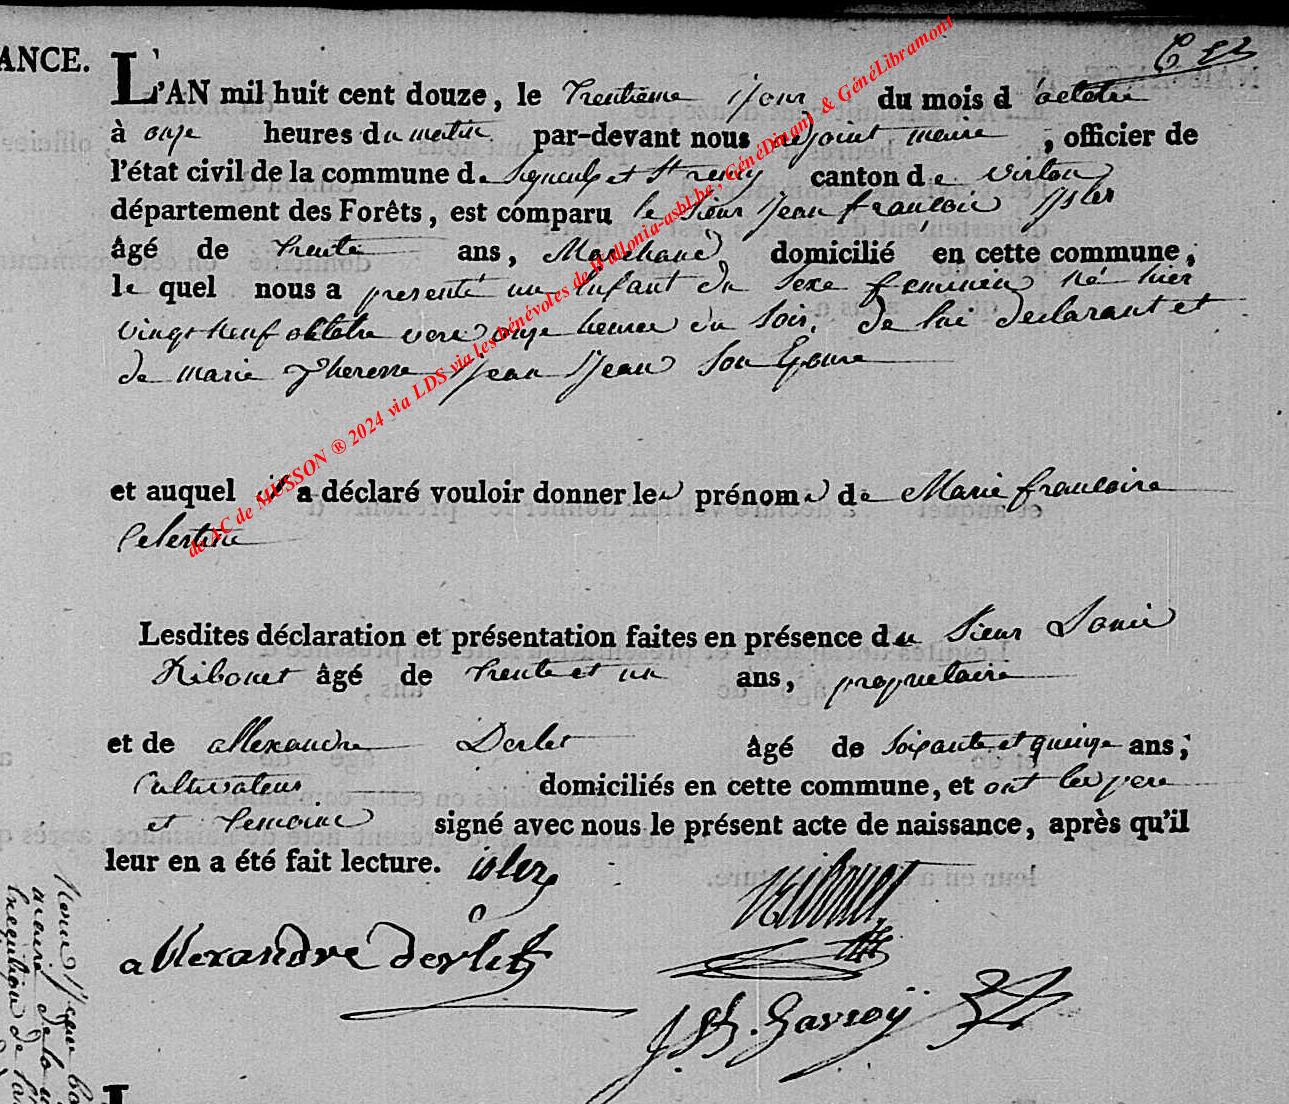 ANCE.
L'AN mil huit cent douze, le trentième jour du mois d'octobre
à onze heures du matin par-devant nous adjoint maire, officier de
l'état civil de la commune de Signeulx et St remy canton de virton
département des Forêts, est comparu le Sieur Jean françois Isler
âgé de trente ans, Marchand domicilié en cette commune,
le quel nous a presenté un Enfant du Sexe feminin né hier
vingt neuf octobre vers onze heures du Soir, de lui declarant et
de marie Theresse Jean Jean Son Epouse
et auquel il a déclaré vouloir donner les prénoms de Marie françoise
Celestine
Lesdites déclaration et présentation faites en présence du Sieur
Ribouet âgé de trente et un ans, proprietaire
et de allexandre Derlet âgé de Soixante et quinze ans,
Cultivateur domiciliés en cette commune, et ont les pere
et temoins signé avec nous le présent acte de naissance, après qu'il
leur en a été fait lecture. isler
allexandre derlet
Gavroÿ
de AC de MUSSON ® 2024 via LDS via les bénévoles de Wallonia-asbl.be, GénéDinant & GénéLibramont